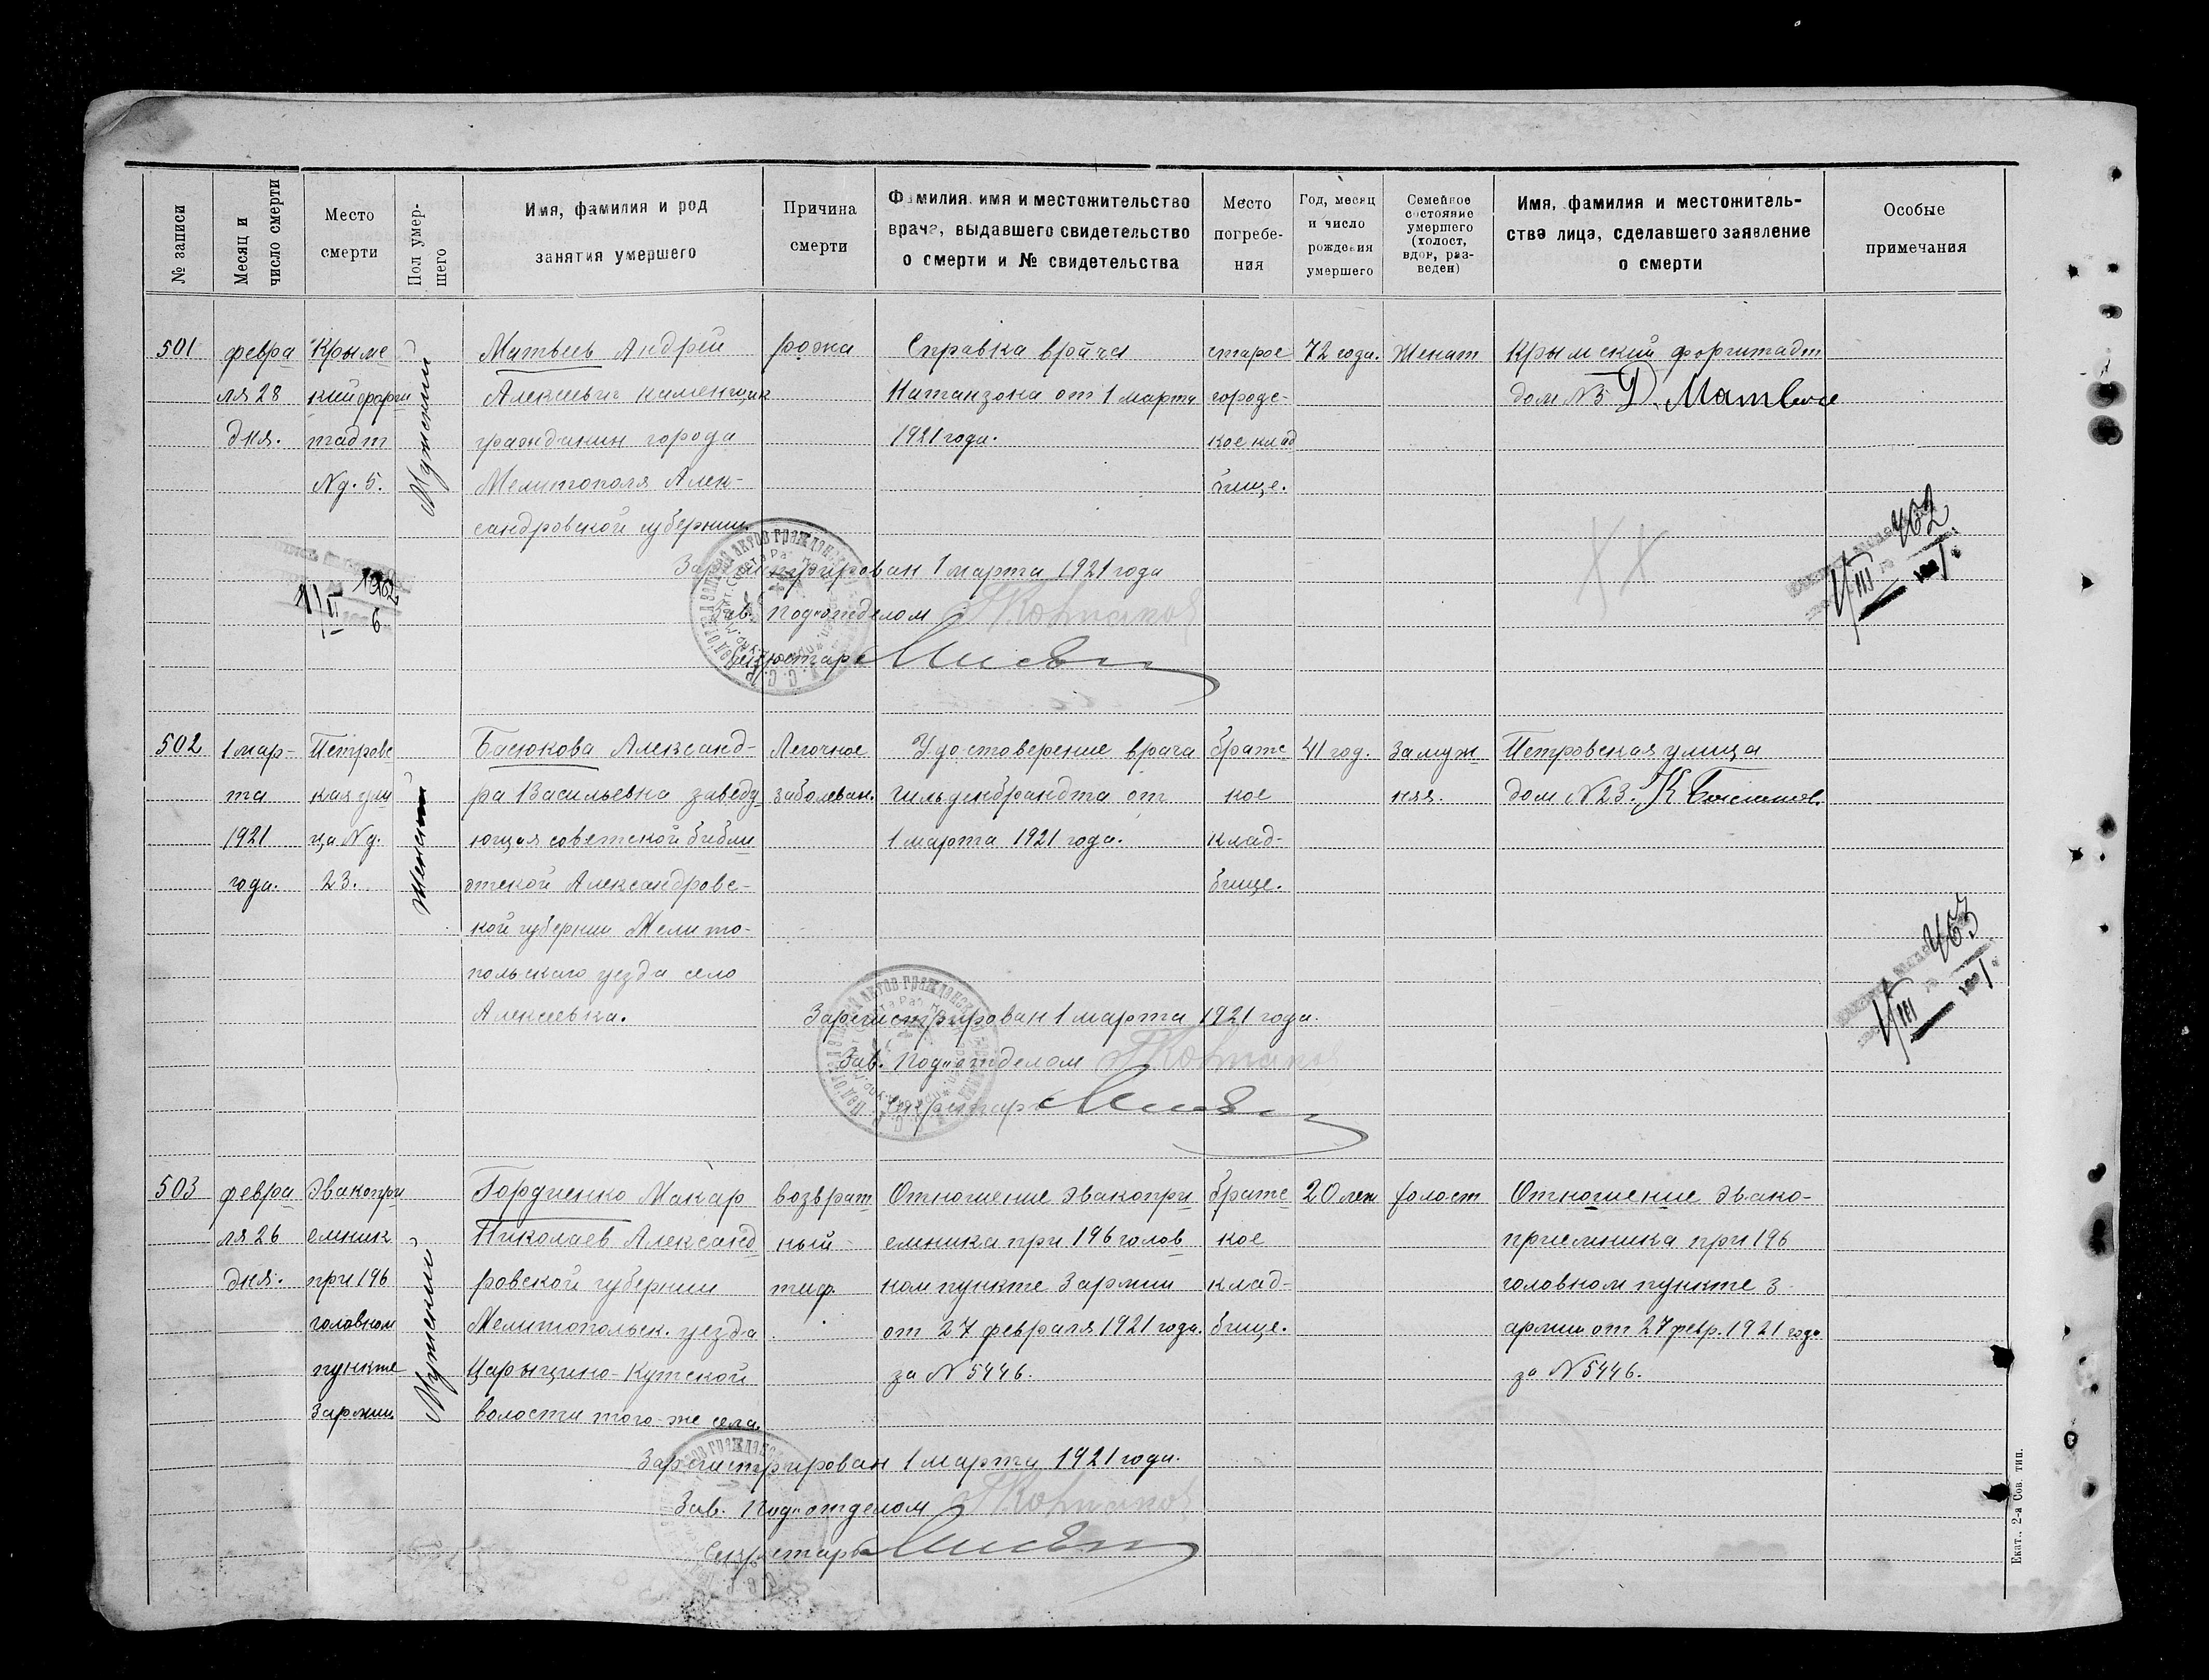 № записи
Месяц и
число смерти
Место
смерти
Пол умер-
шего
Имя, фамилия и род
занятия умершего
Причина
смерти
Фамилия имя и местожительство
врача, выдавшего свидетельство
о смерти и № свидетельства
Место
погребе-
ния
Год, месяц
и число
рождения
умершего
Семейное
состояние
умершего
(холост,
вдов, раз-
веден)
Имя, фамилия и местожитель-
ства лица, сделавшего заявление
о смерти
Особые
примечания
501
февра
ля 28
дня.
Крымс
кий форш
тадт
№ д. 5.
Мужский
Матвеев Андрей
Алексеевич каменщик
гражданин города
Мелитополя Алек-
сандровской губернии.
рожа
Справка врача
Натанзона от 1 марта
1921 года.
старое
городс-
кое клад
бище.
72 года.
Женат
Крымский форштадт
дом № 5 Матвеев
Зарегистрирован 1 марта 1921 года
Зав. Подотделом
Секретарь
462
502
1 мар-
та
1921
года.
Петровс
кая ули
ца № д.
23.
Женский
Басюкова Александ-
ра Васильевна заведу
ющая советской библи
отекой Александровс-
кой губернии Мелито-
польскаго уезда село
Алексеевка.
Легочное
заболеван.
Удостоверение врача
Гильденбрандта от
1 марта 1921 года.
братс
кое
клад-
бище.
41 год.
Замуж
няя.
Петровская улица
дом № 23. К
Зарегистрирован 1 марта 1921 года.
Зав. Подотделом
Секретарь
463
503
февра
ля 26
дня.
Эвакопри
емник
при 196
головном
пункте
3 армии
Мужский
Гордиенко Макар
Николаев Александ
ровской губернии
Мелитопольск. уезда
Царыцино-Кутской
волости того-же села.
возврат
ный
тиф.
Отношение эвакопри
емника при 196 голов
ном пункте 3 армии
от 27 февраля 1921 года.
за № 5446.
братс
кое
клад-
бище.
20 лет
холост
Отношение эвако-
приемника при 196
головном пункте 3
армии от 27 февр. 1921 года
за № 5446.
Зарегистрирован 1 марта 1921 года.
Зав. Подотделом
Секретарь
Екат. 2-я Сов. тип.